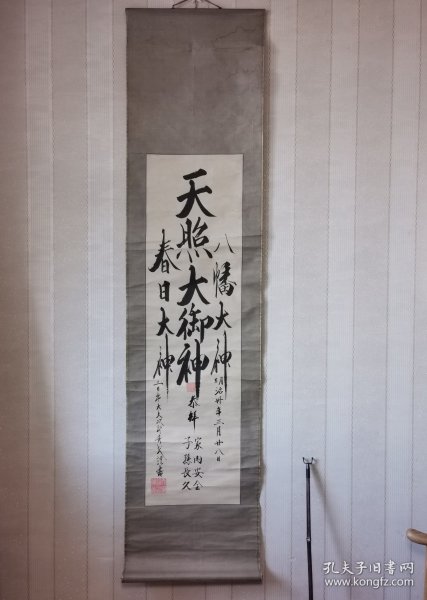 天照大御神
八幡大神
春日大神
明治卅年三月廿八日
恭拜
家内安全
子孫長久
孔夫子旧書网
www.kongfz.com